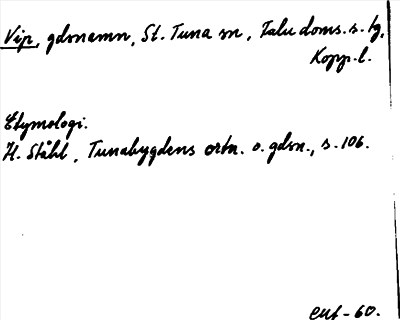 Vip, gdsnamn, St. Tuna sn, Falu doms. s. tg,
Kopp. l.
Etymologi.
H. Ståhl, Tunabygdens ortn. o. gdsn., s. 106.
-60.